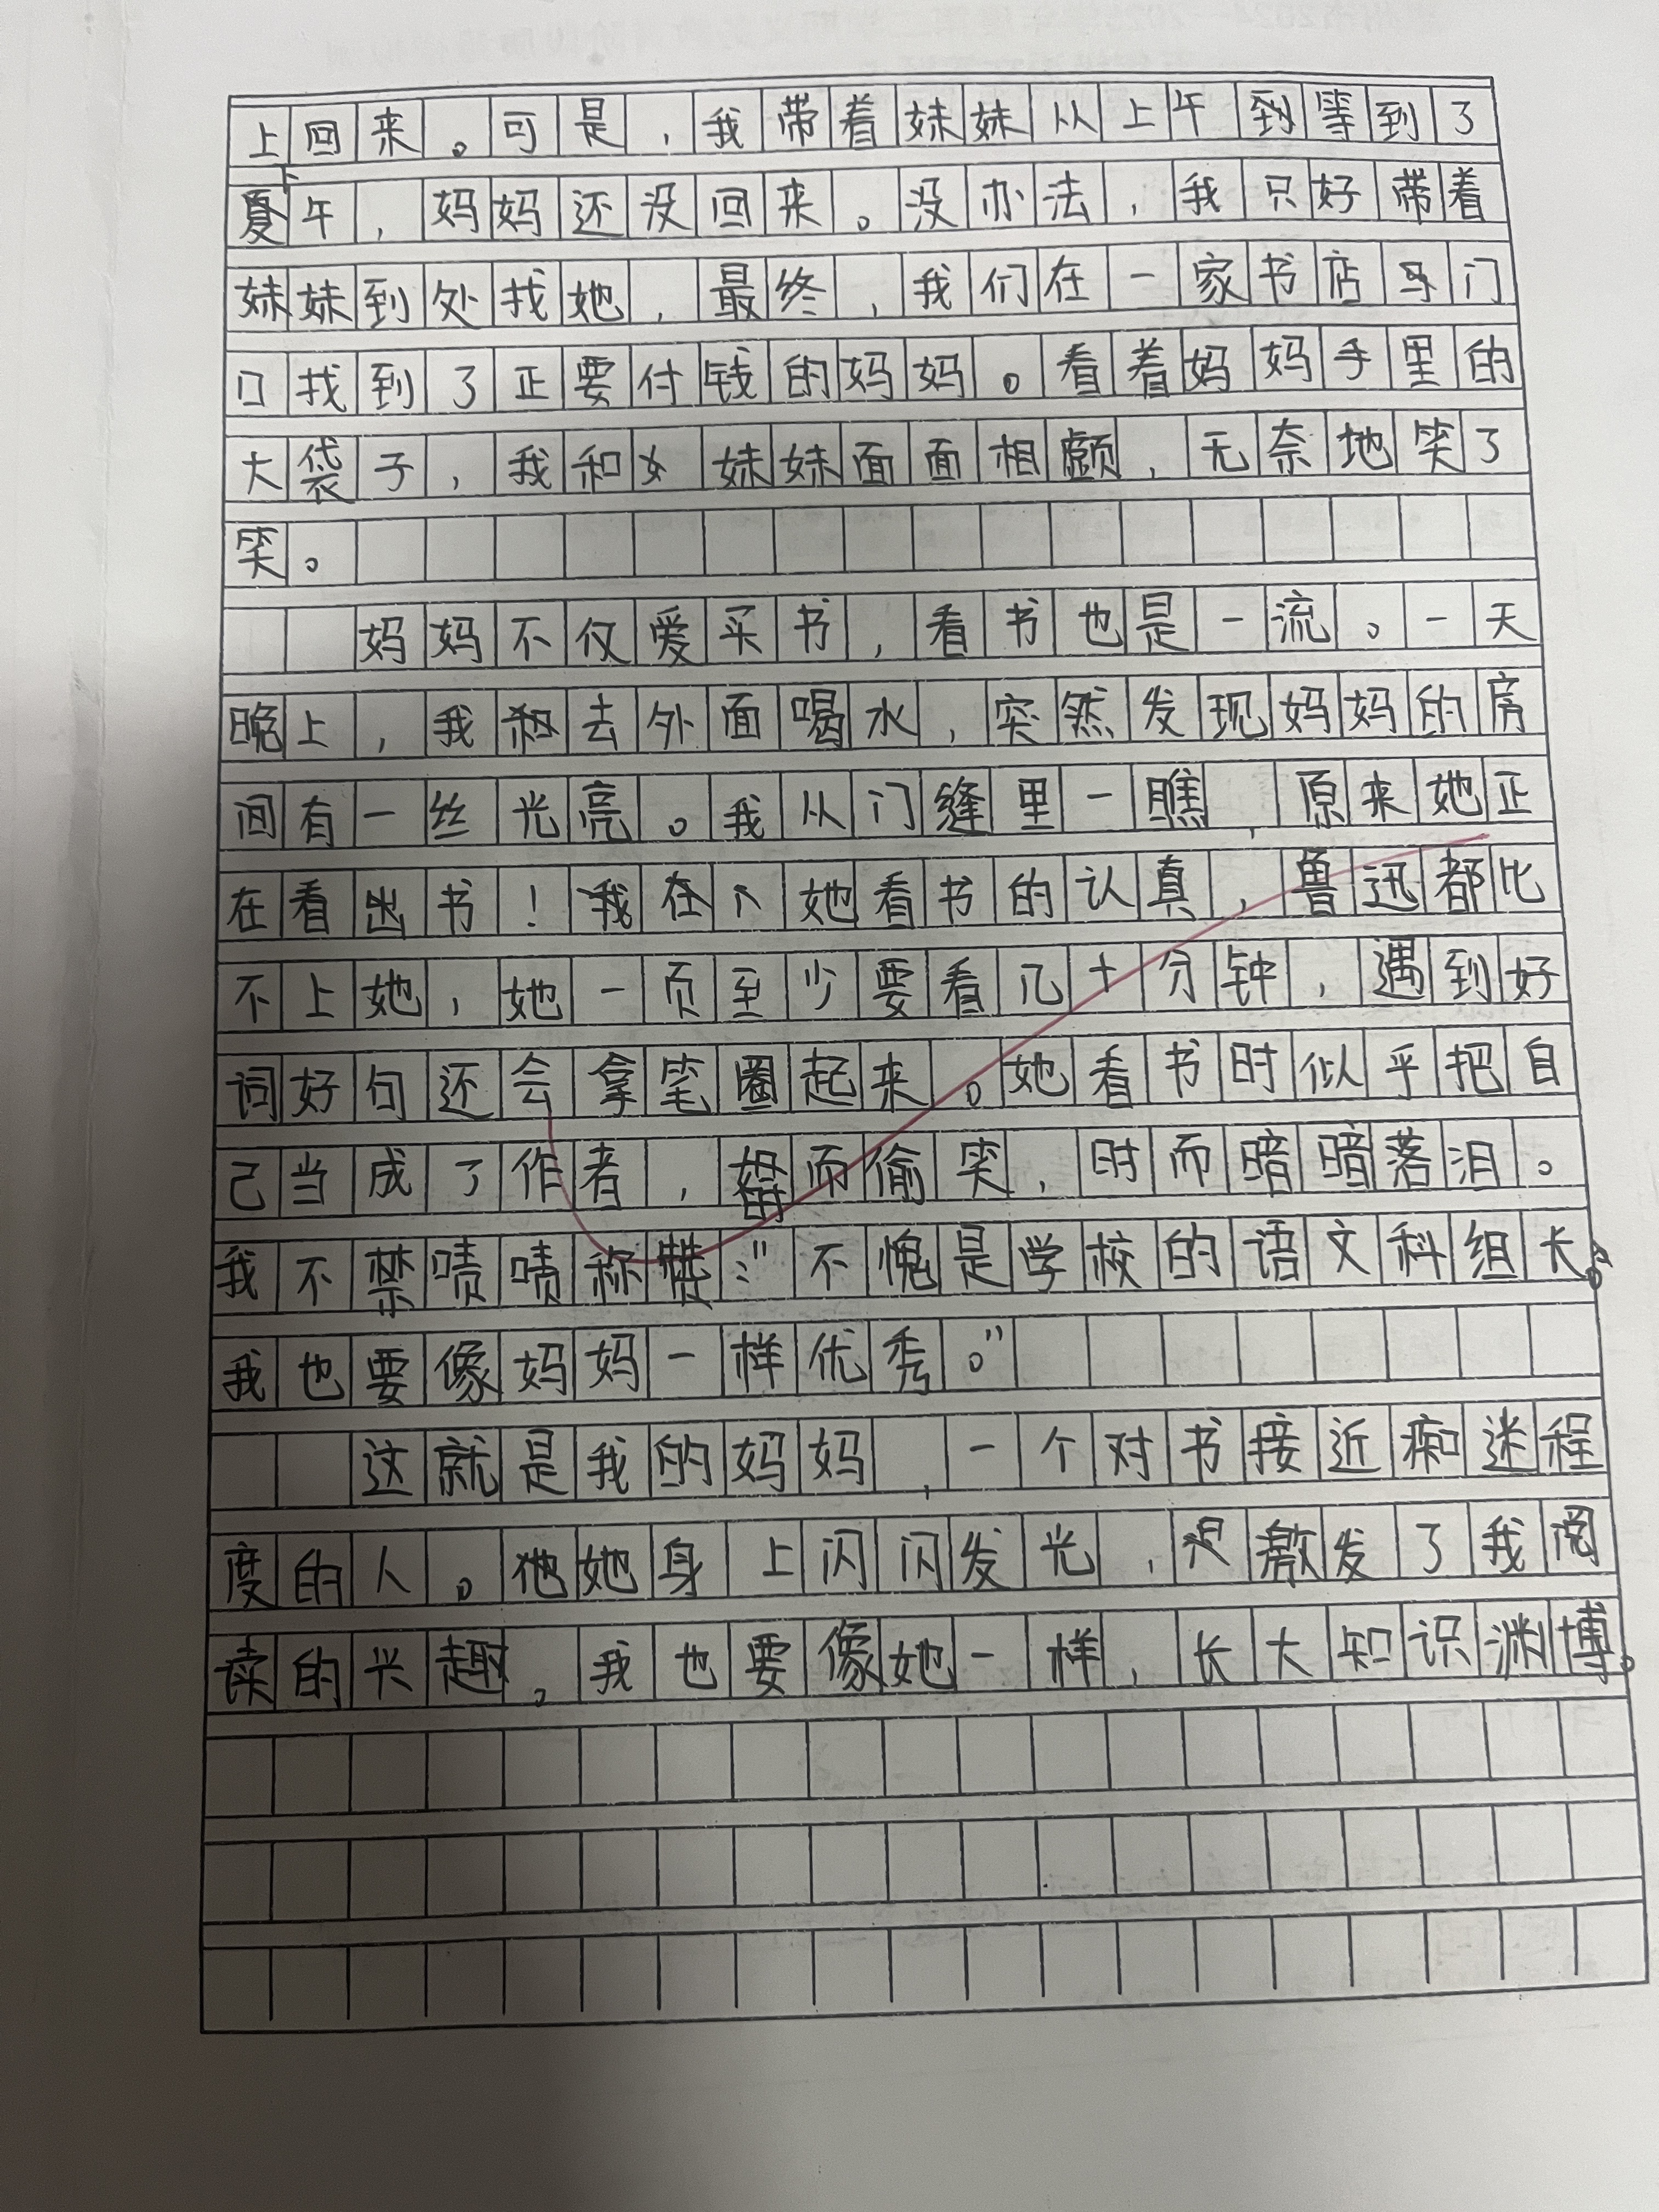 上回来。可是，我带着妹妹从上午到等到了
下午，妈妈还没回来。没办法，我只好带着
妹妹到处找她，最终，我们在一家书店门
口找到了正要付钱的妈妈。看着妈妈手里的
大袋子，我和妹妹面面相觑，无奈地笑了
笑。
妈妈不仅爱买书，看书也是一流。一天
晚上，我去外面喝水，突然发现妈妈的房
间有一丝光亮。我从门缝里一瞧，原来她正
在看书！她看书的认真，鲁迅都比
不上她，她一页至少要看几十分钟，遇到好
词好句还会拿笔圈起来。她看书时似乎把自
己当成了作者，时而偷笑，时而暗暗落泪。
我不禁啧啧称赞：“不愧是学校的语文科组长。
我也要像妈妈一样优秀。”
这就是我的妈妈，一个对书接近痴迷程
度的人。她身上闪闪发光，激发了我阅
读的兴趣。我也要像她一样，长大知识渊博。